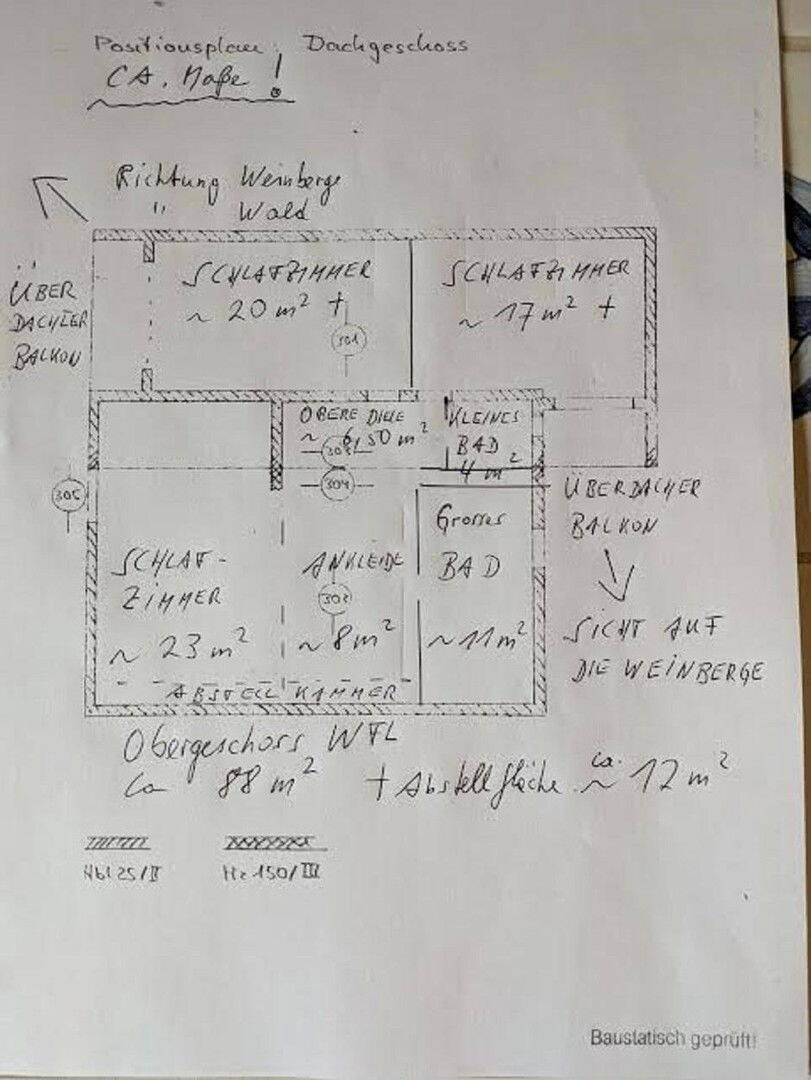 Positionsplan: Dachgeschoss
CA. Maße!
Richtung Weinberge
" Wald
ÜBER
DACHTER
BALKON
SCHLAFZIMMER
~ 20 m² +
301
SCHLAFZIMMER
~ 17 m² +
OBERE DIELE
~ 6,50 m²
KLEINES
BAD
4 m²
304
305
ÜBERDACHER
BALKON
SICHT AUF
DIE WEINBERGE
SCHLAF-
ZIMMER
~ 23 m²
ANKLEIDE
302
~ 8 m²
Grosses
BAD
~ 11 m²
ABSTELL KAMMER
Obergeschoss WFL
Ca 88 m² + Abstellfläche ca. ~ 12 m²
Hbl 25/II
Hz 150/III
Baustatisch geprüft!